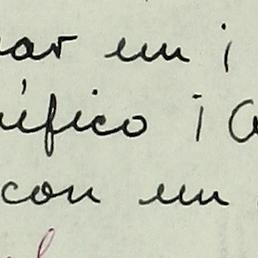 ar un ¡
ífico ¡A
con un